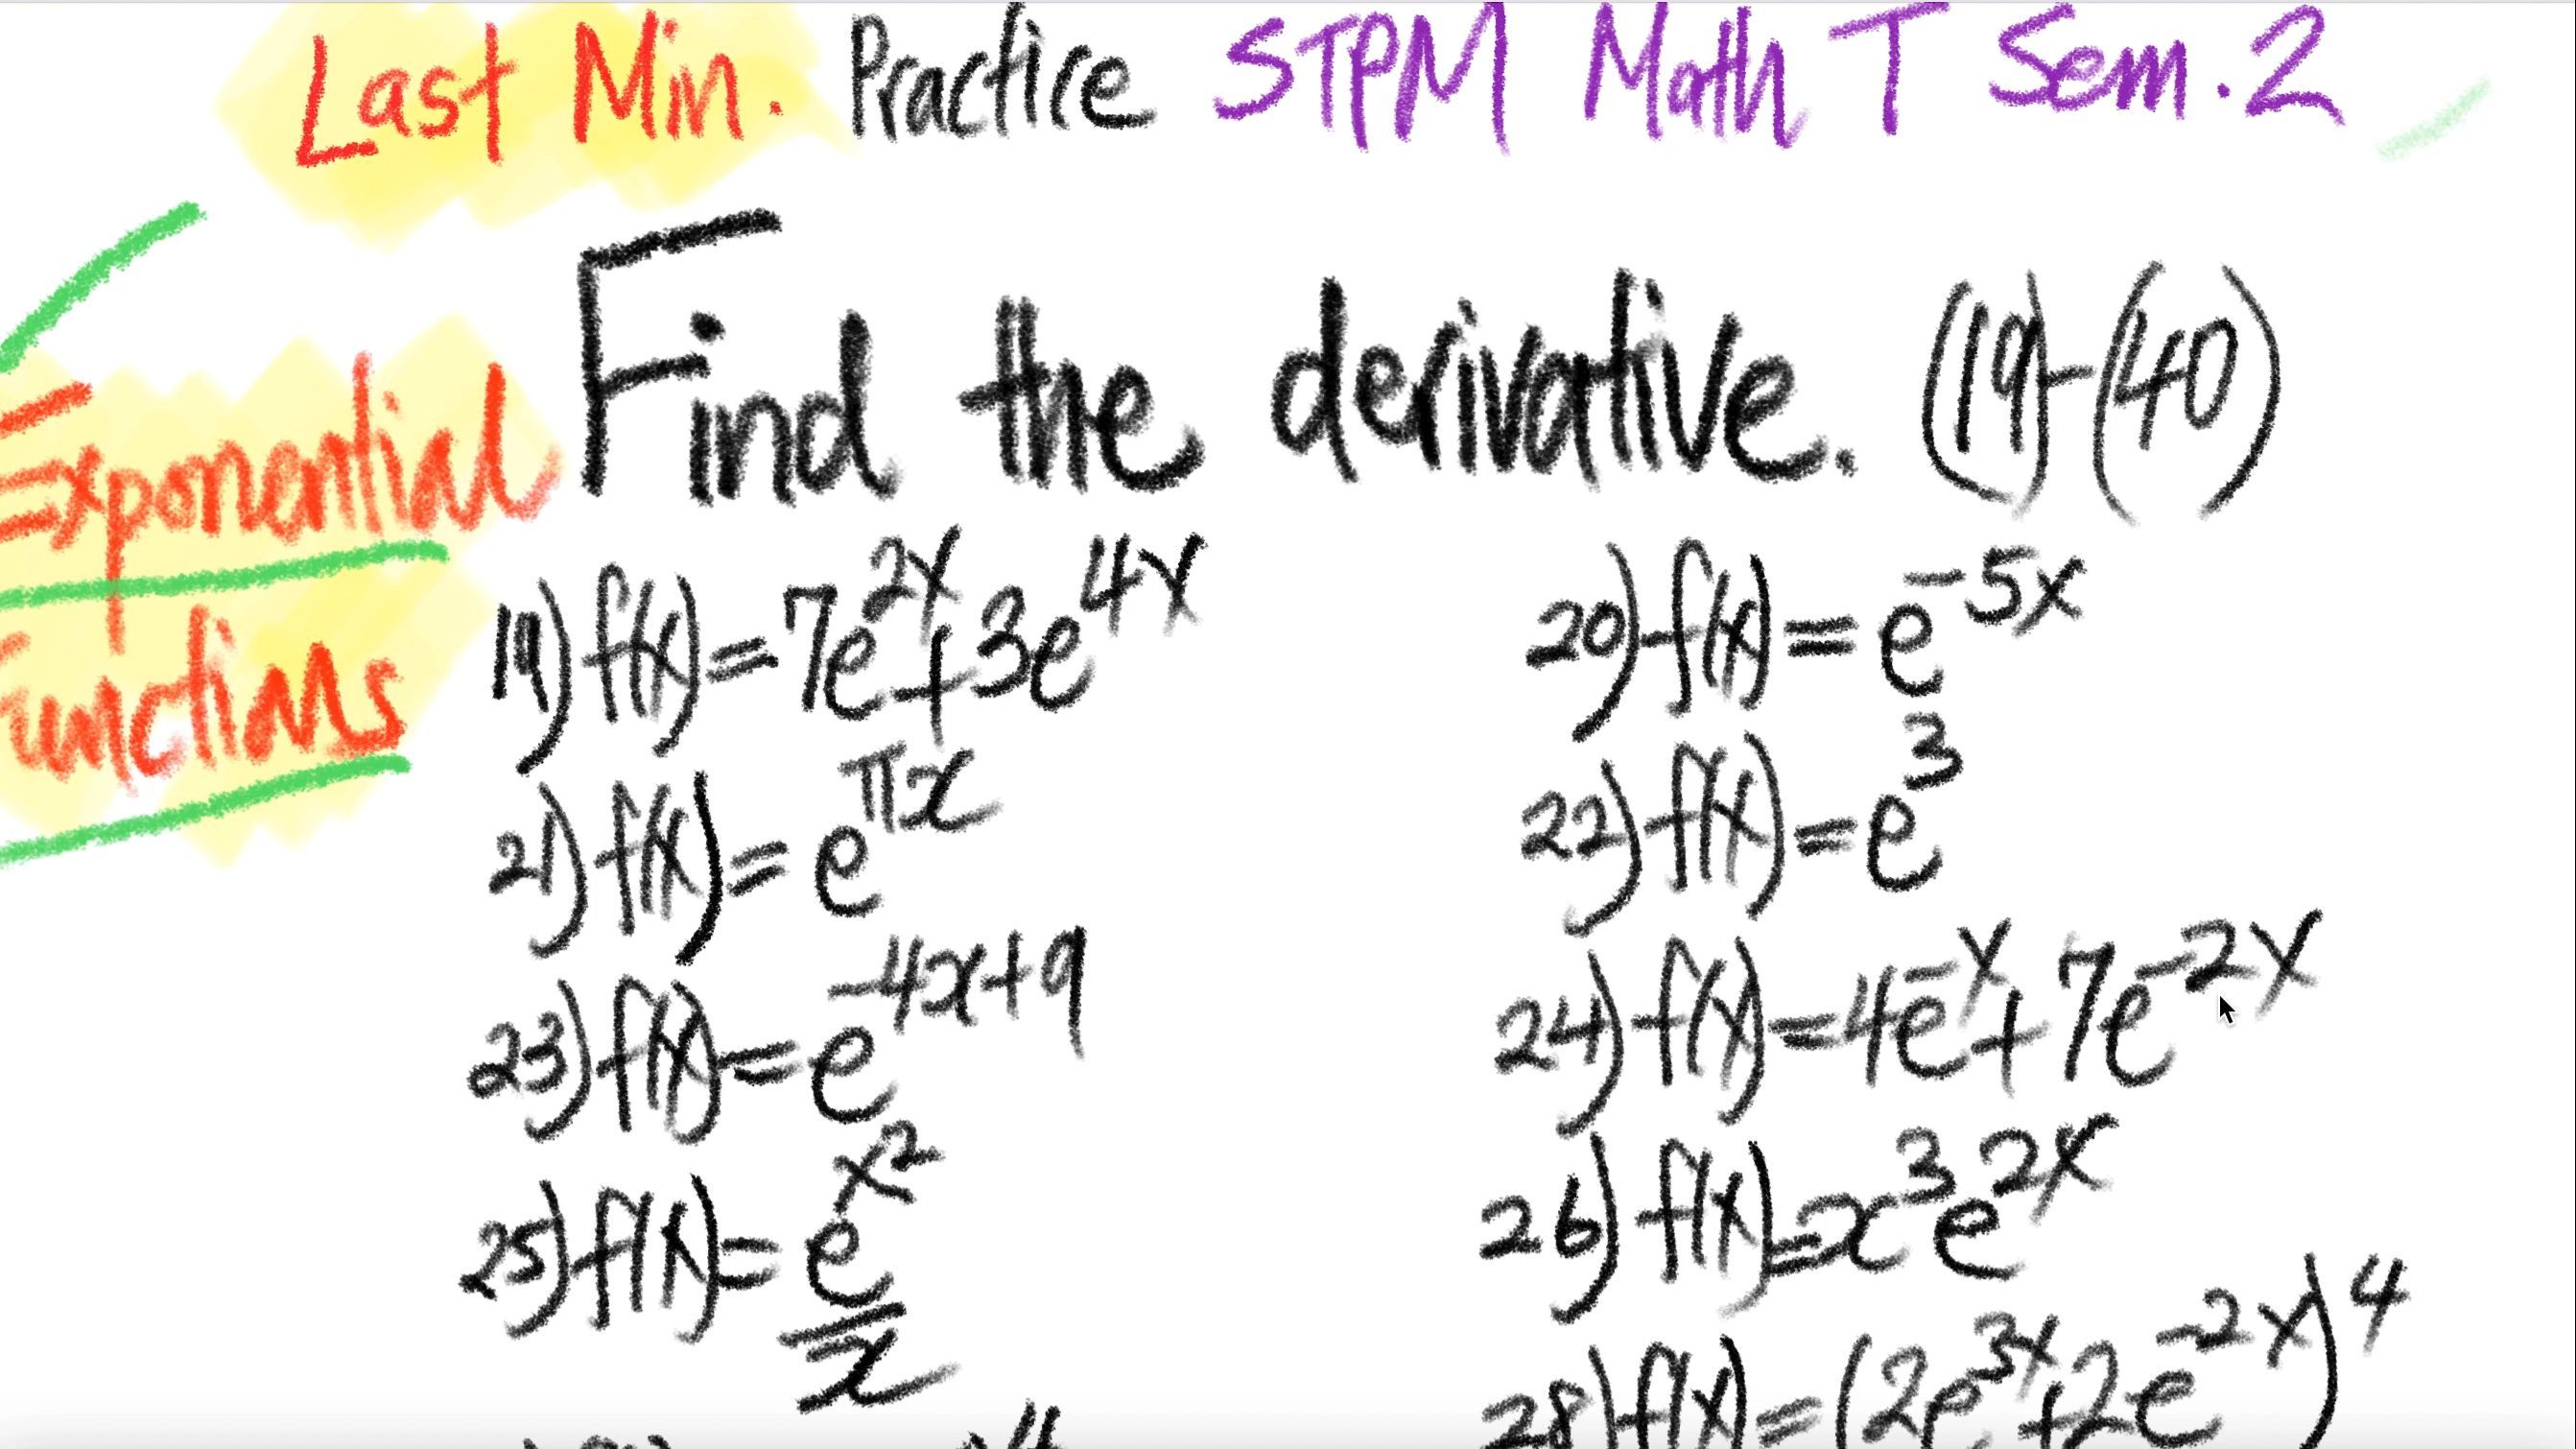 Last Min. Practice STPM Math T Sem. 2
Find the derivative. (19)-(40)
Exponential
Functions
19) f(x) = 7e^{2x} + 3e^{4x}
20) f(x) = e^{-5x}
21) f(x) = e^{πx}
22) f(x) = e^{3}
23) f(x) = e^{-4x+9}
24) f(x) = 4e^{-x} + 7e^{-2x}
25) f(x) = e^{x^2}/x
26) f(x) = x^{3}e^{2x}
28) f(x) = (2e^{3x} + 2e^{-2x})^{4}